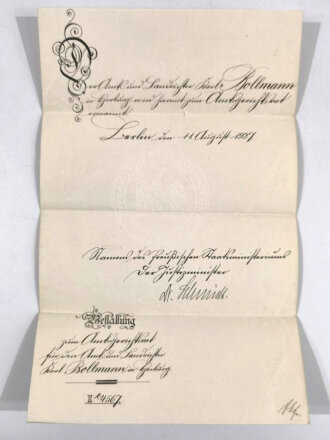 Der Amts und Landrichter Karl Bollmann
in Harburg wird hiermit zum Amtsgerichtsrat
ernannt.
Berlin, den 11 August 1927
Namens des Preußischen Staatsministeriums
Der Justizminister
Dr. Schmidt.
Bestallung
zum Amtsgerichtsrat
für den Amts und Landrichter
Karl Bollmann in Harburg.
4567